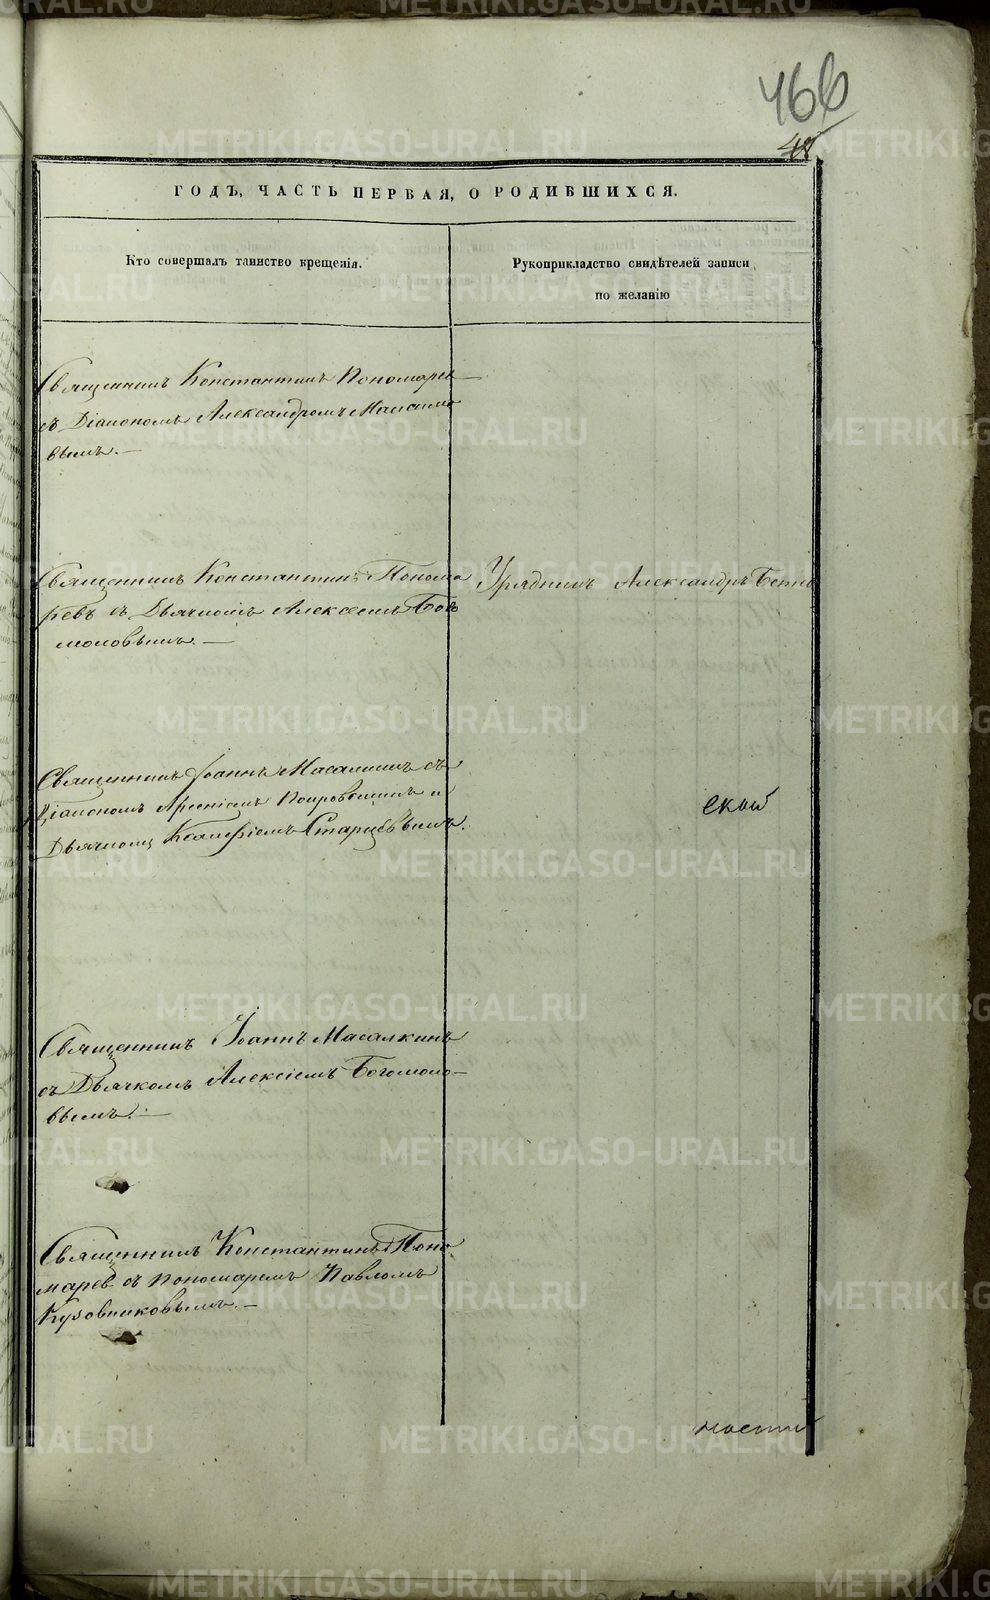 466
48
ГОДЪ, ЧАСТЬ ПЕРВАЯ, О РОДИВШИХСЯ.
Кто совершалъ таинство крещенія.
Рукоприкладство свидѣтелей записи
по желанію
Священникъ Константинъ Пономаревъ
съ Діакономъ Александромъ Максимо
вымъ.—
Священникъ Константинъ Понома
ревъ съ Дьячкомъ Алексѣемъ Бого
моловымъ.—
Урядникъ Александръ
Священникъ Іоаннъ Масалкинъ съ
Діакономъ Арсеніемъ Покровскимъ и
Дьячкомъ Старцевымъ.
ской
Священникъ Іоаннъ Масалкинъ
съ Дьячкомъ Алексіемъ Богомоло—
вымъ.—
Священникъ Константинъ Поно
маревъ съ пономаремъ Павломъ
Кузовниковымъ.—
METRIKI.GASO-URAL.RU